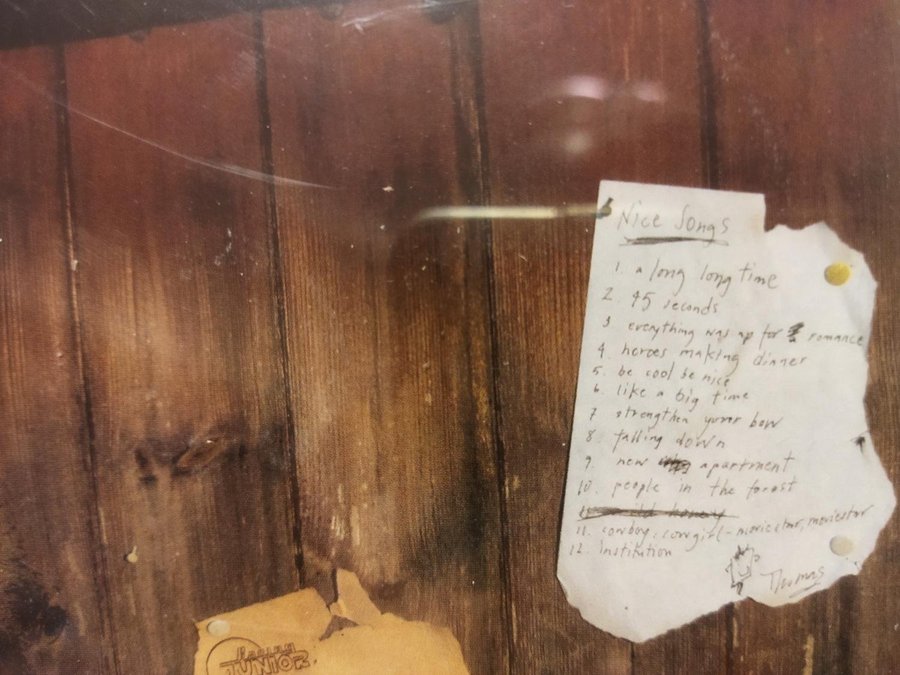 Nice Songs
1. a long long time
2. 45 seconds
3 everything was up for romance
4. horses making dinner
5. be cool be nice
6. like a big time
7 strengthen yurer bow
8. falling down
9. new apartment
10. people in the forest
11. cowboy, cowgirl - moviestar, moviestar
12. Institution
Thomas
JUNIOR